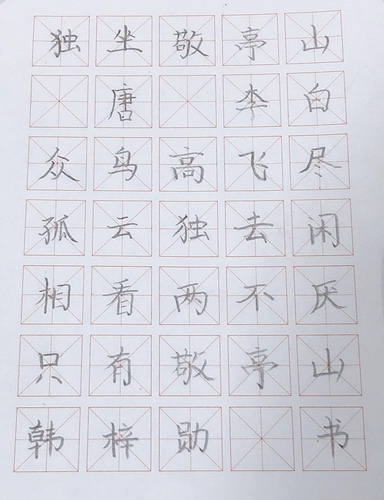 独坐敬亭山
唐 李白
众鸟高飞尽
孤云独去闲
相看两不厌
只有敬亭山
韩梓勋 书